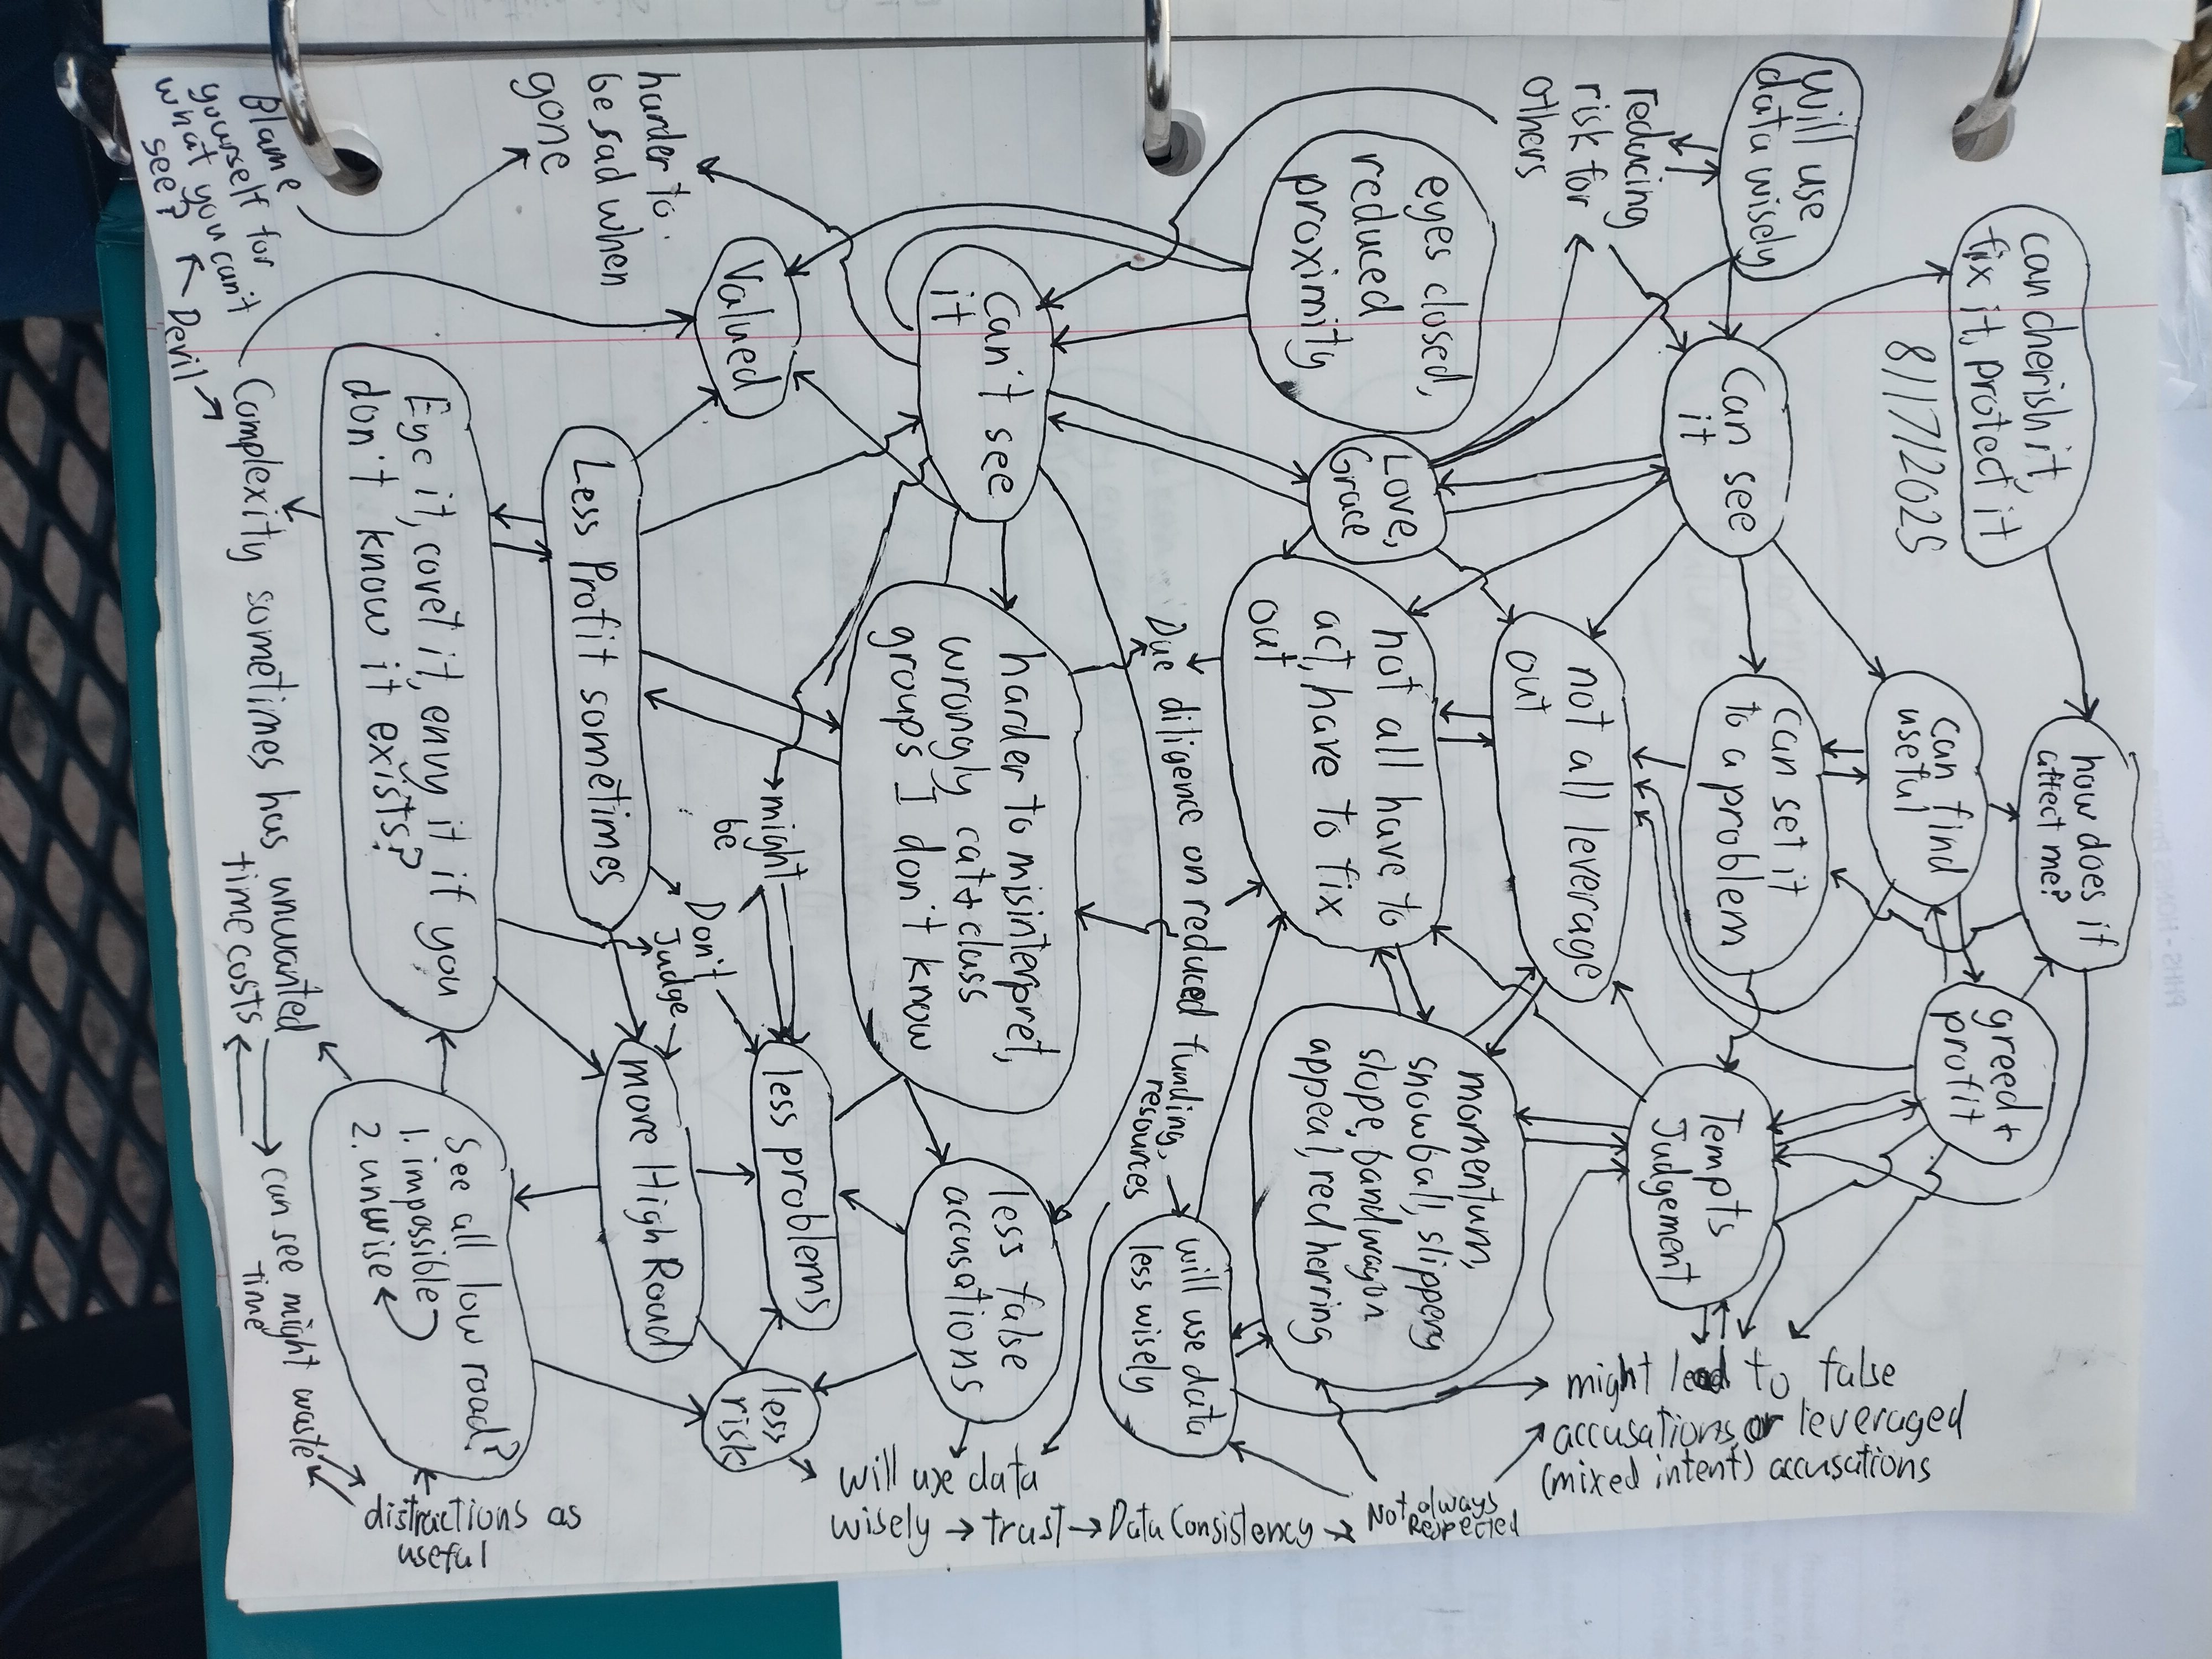 can cherish it,
fix it, protect it
8/17/2025
how does it
affect me?
Will use
data wisely
can find
useful
greed +
profit
Can see
it
can set it
to a problem
Tempts
Judgement
might lead to false
accusations or leveraged
(mixed intent) accusations
reducing
risk for
others
not all leverage
out
Love,
Grace
not all have to
act, have to fix
out
momentum,
snowball, slippery
slope, bandwagon
appeal, red herring
Not always
Respected
eyes closed,
reduced
proximity
Due diligence on reduced funding,
resources
will use data
less wisely
Can't see
it
harder to misinterpret,
wrongly cat + class
groups I don't know
less false
accusations
will use data
wisely → trust → Data Consistency →
Valued
might
be
less problems
less
risk
harder to
be sad when
gone
Less Profit sometimes
Don't
Judge →
more High Road
Eye it, covet it, envy it if you
don't know it exists?
See all low road?
1. impossible
2. unwise
distractions as
useful
Blame
yourself for
what you can't
see?
Devil
Complexity sometimes has unwanted
time costs
can see might waste
time